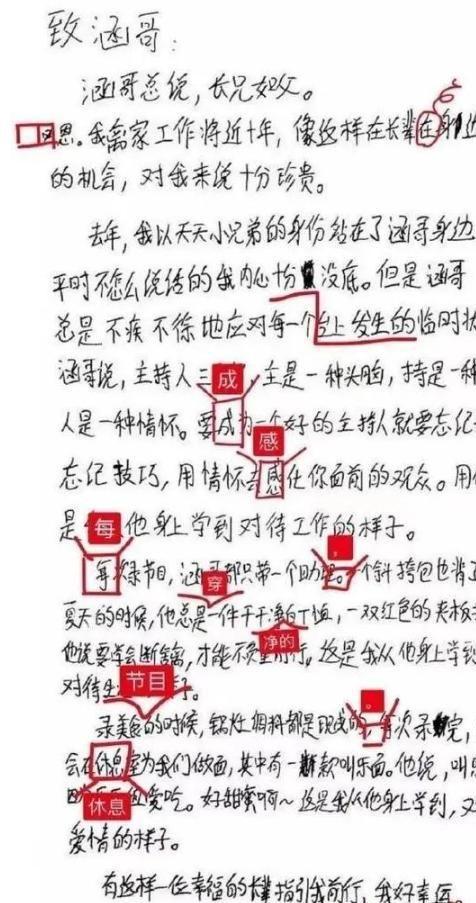 致涵哥：
涵哥总说，长兄如父。
恩。我离家工作将近十年，像这样在长辈在身边
的机会，对我来说十分珍贵。
去年，我以天天小兄弟的身份站在了涵哥身边
平时不怎么说话的我内心十分没底。但是涵哥
总是不疾不徐地应对每一个台上发生的临时状
涵哥说，主持人三 成 ，主是一种头脑，持是一种
人是一种情怀。要成为一个好的主持人就要忘记
感
忘记技巧，用情怀去感化你面前的观众。用
是 他身上学到对待工作的样子。
每 ，
每次录节目，涵哥都只带一个助理。一个斜挎包也背了
穿
夏天的时候，他总是一件干干净白T恤，一双红色的夹板
净的
他说要学会断舍离，才能不 前行。这是我从他身上学到
节目
对待生 子。
。
录美食的时候，锅灶调料都是现成的，每次录完，
会在休息室为我们做面，其中有一款叫乐面。他说，叫
休息
爱吃。好甜蜜啊～这是我从他身上学到，又
爱情的样子。
有这样一位幸福的长辈指引我前行，我好幸运